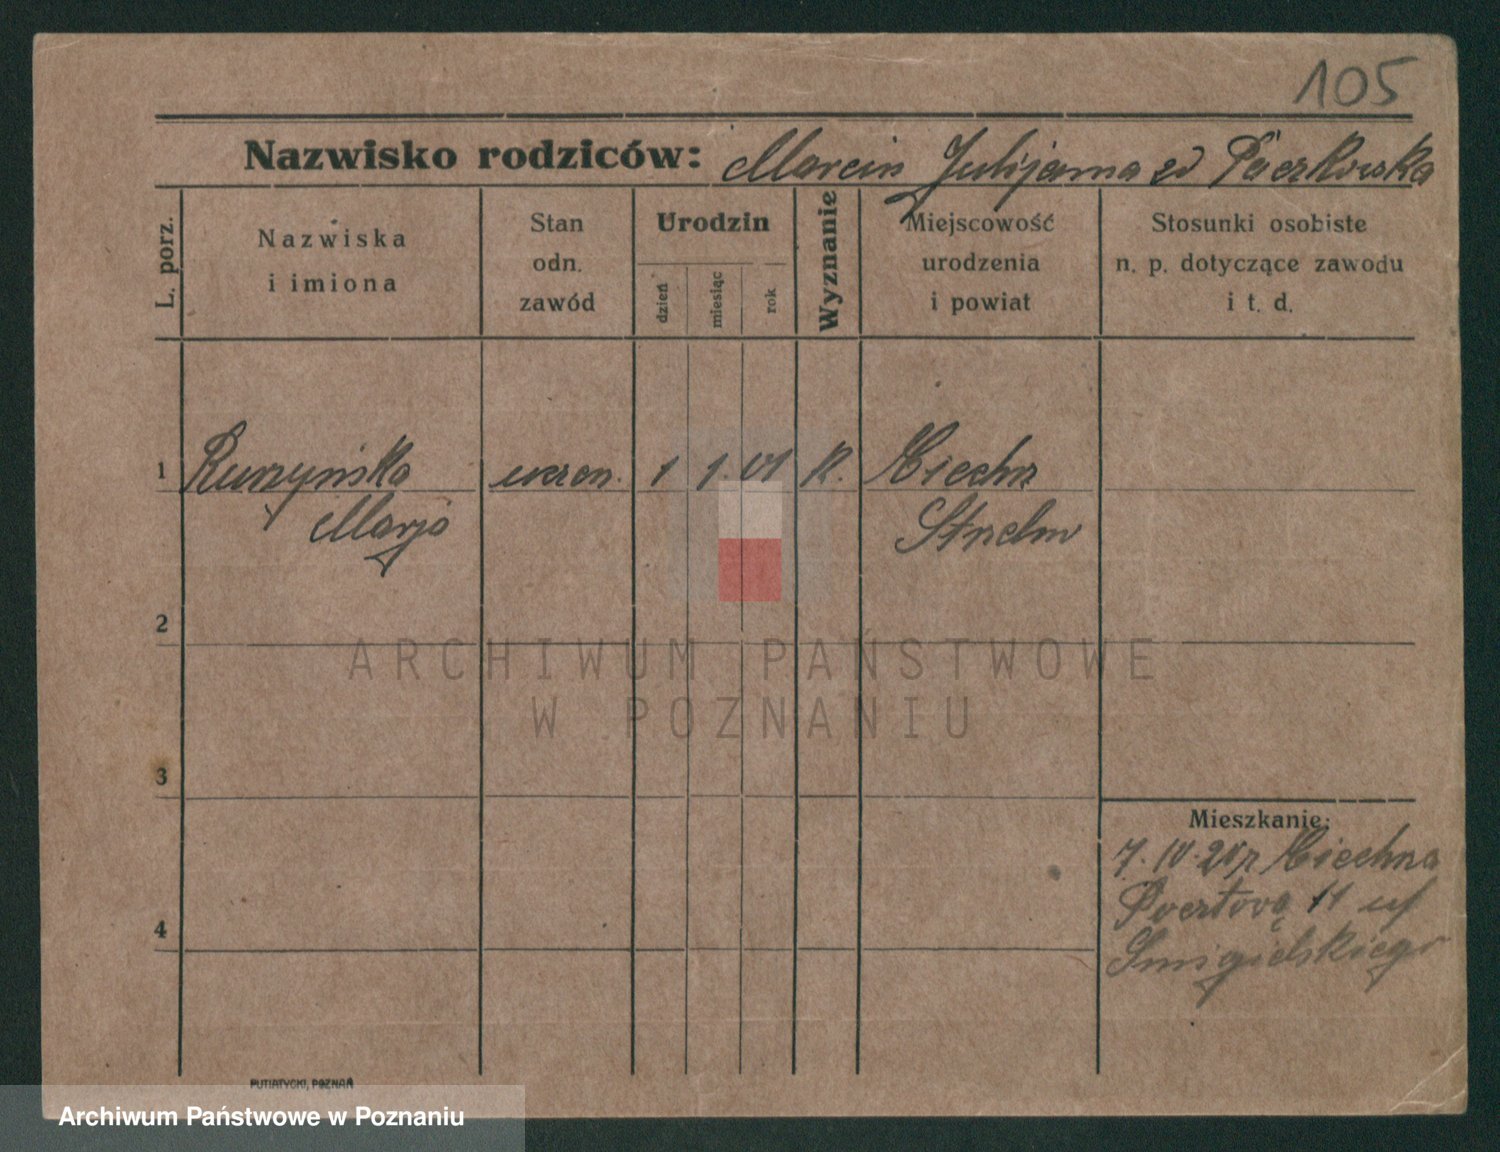 105
Nazwisko rodziców: Marcin Julijanna zd
L. porz.
Nazwiska
i imiona
Stan
odn.
zawód
Urodzin
dzień
miesiąc
rok
Wyznanie
Miejscowość
urodzenia
i powiat
Stosunki osobiste
n. p. dotyczące zawodu
i t. d.
1 1 1. 01 K.
Marja
2
ARCHIWUM PAŃSTWOWE
W POZNANIU
3
4
Mieszkanie:
7. IV. 21
11
Smigielskiego
PUTIATYCKI, POZNAŃ
Archiwum Państwowe w Poznaniu